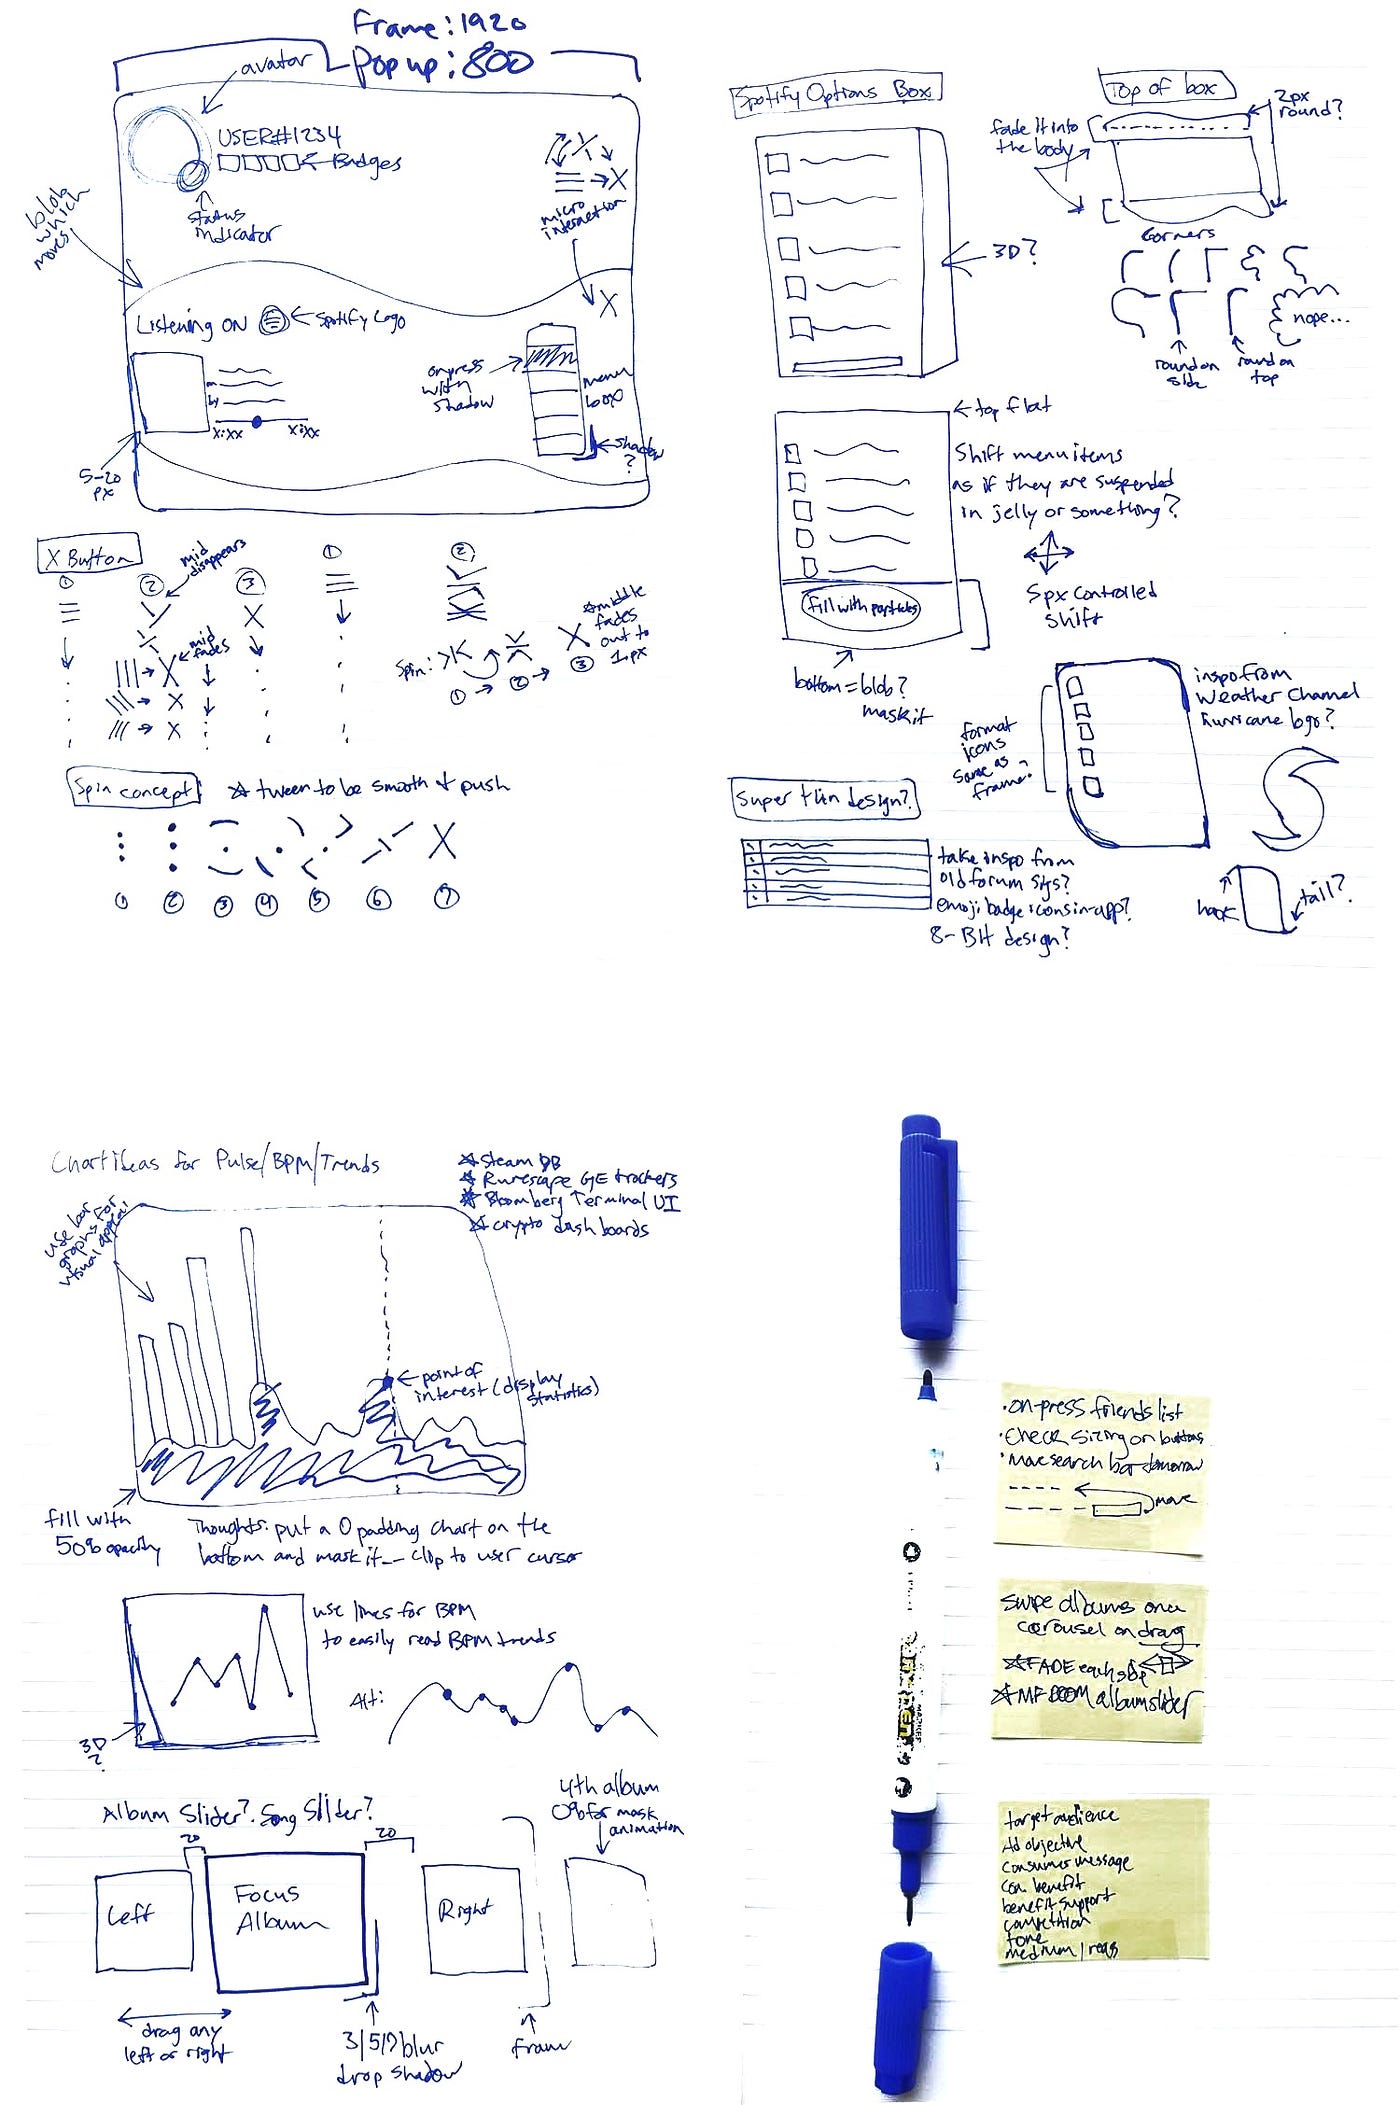 Frame: 1920
Pop up: 800
avatar
USER#1234
Badges
status
indicator
micro
interaction
blob
which
moves
Listening ON
Spotify Logo
on press
with
shadow
menu
box
by
x:xx
x:xx
shadow
?
5-20
px
X Button
mid
disappears
①
②
③
①
②
mid
fades
Spin:
① → ② → ③
☆ middle
fades
out to
1px
Spin concept
☆ tween to be smooth & push
① ② ③ ④ ⑤ ⑥ ⑦
Spotify Options Box
3D?
Top of box
2px
round?
fade it into
the body
Corners
nope...
round on
side
round on
top
top flat
Shift menu items
as if they are suspended
in jelly or something?
5px controlled
shift
fill with particles
bottom = blob?
mask it
inspo from
Weather Channel
hurricane logo?
format
icons
same as
frame?
hook
tail?
Super thin design?
take inspo from
old forum sigs?
emoji badge icons in-app?
8-Bit design?
Chart ideas for Pulse/BPM/Trends
☆ Steam DB
☆ Runescape GE trackers
☆ Bloomberg Terminal UI
☆ crypto dash boards
use bar
graphs for
visual appeal
point of
interest (display
statistics)
fill with
50% opacity
Thoughts: put a 0 padding chart on the
bottom and mask it — clip to user cursor
use lines for BPM
to easily read BPM trends
Alt:
3D
?
Album Slider? Song Slider?
20
20
4th album
0% for mask
animation
Left
Focus
Album
Right
drag any
left or right
3/5/7 blur
drop shadow
frame
• on-press friends list
• check sizing on buttons
• move search bar tomorrow
move
Swipe albums on a
carousel on drag
☆ FADE each side
☆ MF DOOM album slider
target audience
Ad objective
consumer message
con. benefit
benefit support
competition
tone
medium / reqs
MARKER